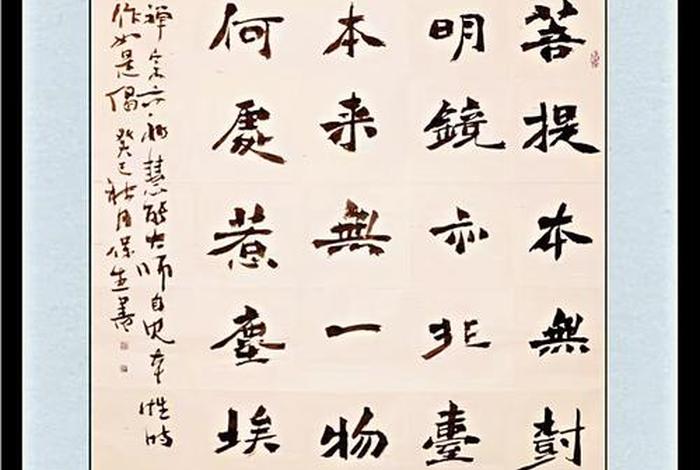 菩提本無尌
明鏡亦非臺
本来無一物
何處惹塵埃
禪宗六祖慧能大師自見本性時
作如是偈 癸巳秋月保生書